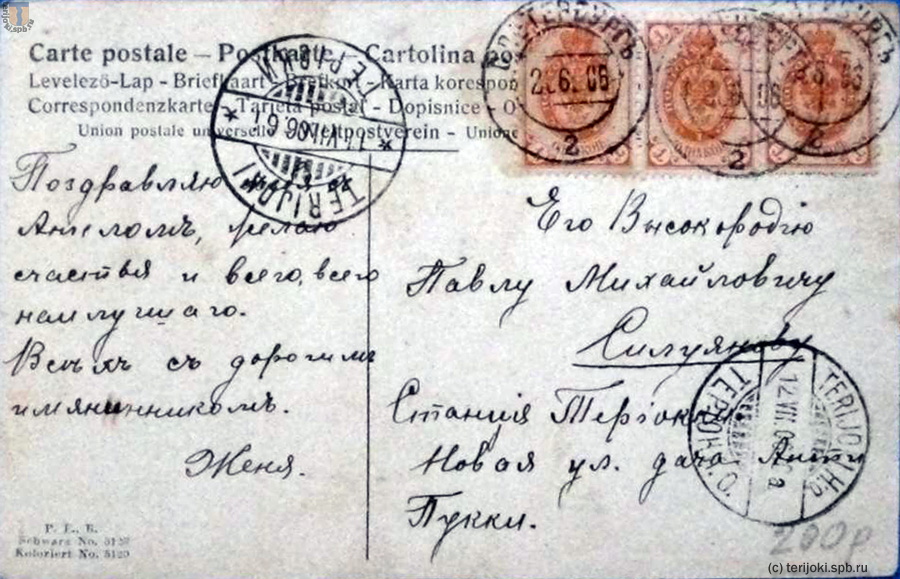 Carte postale – Postkarte – Cartolina
Levelező-Lap - Briefkaart - Brefkort - Karta korespon
Correspondenzkarte - Tarjeta postal - Dopisnice -
Union postale universelle - Weltpostverein - Unione
Поздравляю
Ангеломъ, желаю
счастья и всего, всего
наилучшаго.
Всѣхъ съ дорогимъ
имянинникомъ.
Женя.
P. L. B.
Schwarz No. 5120
Koloriert No. 5120
Его Высокородію
Павлу Михайловичу
Силуянову
Станція Теріоки
Новая ул. дача Анти
Пукки.
TERIJOKI
TERIJOKI H:o
ТЕРІОКИ
12.VII.
2
2
2
200р
(c) terijoki.spb.ru
terijoki
.spb.ru